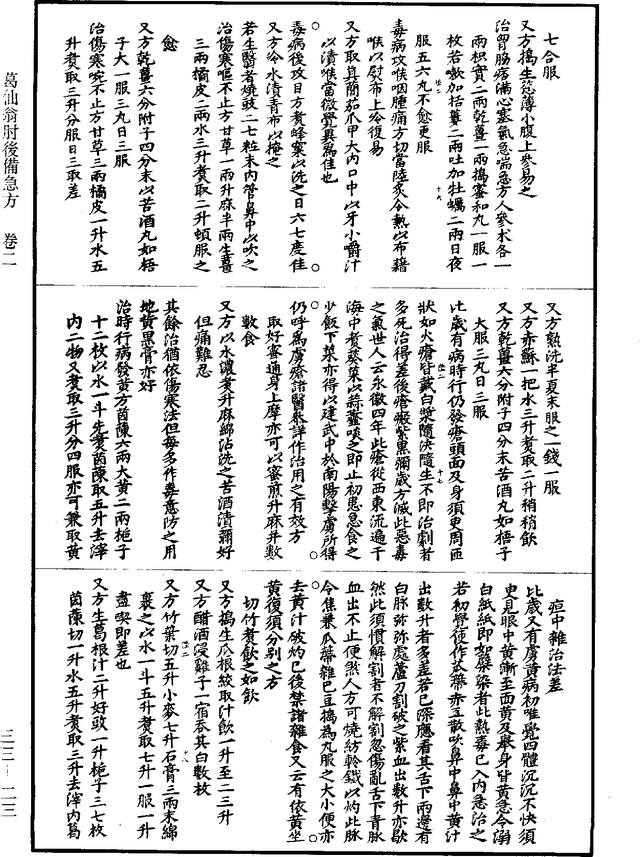 七合服
又方搗生葱薄小腹上參易之
治胷脇痞滿心塞氣急喘急方人參术各一
兩枳實二兩乾薑一兩搗蜜和丸一服一
枚若嗽加栝蔞二兩吐加牡蠣二兩日夜
服五六丸不愈更服
毒病攻喉咽腫痛方切當陸炙令熱以布藉
喉以熨布上冷復易
又方取真䕡茹爪甲大內口中以牙小嚼汁
以漬喉當微覺異爲佳也
毒病後攻目方煑蜂窠以洗之日六七度佳
又方冷水漬青布以掩之
若生翳者燒豉二七粒末內管鼻中以吹之
治傷寒嘔不止方甘草一兩升麻半兩生薑
三兩橘皮二兩水三升煑取二升頓服之
愈
又方乾薑六分附子四分末以苦酒丸如梧
子大一服三丸日三服
治傷寒啘不止方甘草三兩橘皮一升水五
升煑取三升分服日三取差
又方熟洗半夏末服之一錢一服
又方赤蘇一把水三升煑取二升稍稍飲
又方乾薑六分附子四分末苦酒丸如梧子
大服三丸日三服
比歲有病時行仍發瘡頭面及身須更周匝
狀如火瘡皆戴白漿隨決隨生不即治劇者
多死治得差後瘡瘢紫黑彌歲方滅此惡毒
之氣世人云永徽四年此瘡從西東流遍于
海中煑葵菜以蒜虀啖之即止初患急食之
少飯下菜亦得以建武中於南陽擊虜所得
仍呼爲虜瘡諸醫叅詳作治用之有效方
取好蜜通身上摩亦可以蜜煎升麻并數
數食
又方以水濃煑升麻綿沾洗之苦酒漬彌好
但痛難忍
其餘治猶依傷寒法但每多作毒意防之用
地黄黑膏亦好
治時行病發黄方茵陳六兩大黄二兩梔子
十二枚以水一斗先煑茵陳取五升去滓
內二物又煑取三升分四服亦可兼取黄
疸中雜治法差
比歲又有虜黄病初唯覺四體沉沉不快須
更見眼中黄漸至面黄及舉身皆黄急令溺
白紙紙即如蘗染者此熱毒已入內急治之
若初覺便作苽蔕赤豆散吹鼻中鼻中黄汁
出數升者多差若已深應看其舌下兩邊有
白脉弥弥處蘆刀割破之紫血出數升亦歇
然此須慣解割者不解割忽傷亂舌下青脉
血出不止便煞人方可燒紡軨鐵以灼此脉
令焦兼瓜蔕雜巴豆搗為丸服之大小便亦
去黄汁破灼已後禁諸雜食又云有依黄坐
黄復須分別之方
切竹煑飲之如飲
又方搗生瓜根絞取汁飲一升至二三升
又方醋酒浸雞子一宿吞其白數枚
又方竹葉切五升小麥七升石膏三兩末綿
裹之以水一斗五升煑取七升一服一升
盡喫即差也
又方生葛根汁二升好豉一升梔子三七枚
茵蔯切一升水五升煑取三升去滓內葛
葛仙翁肘後備急方 卷二
三三—一二三